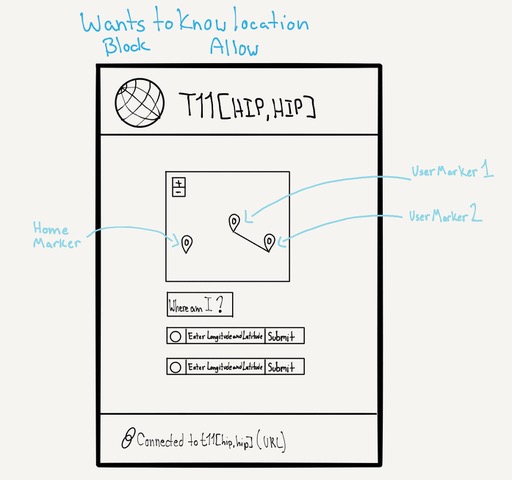 Wants to Know location
Block Allow
T11[HIP,HIP]
+
-
User Marker 1
User Marker 2
Home
Marker
Where am I ?
Enter Longitude and Latitude Submit
Enter Longitude and Latitude Submit
Connected to t11[hip,hip] (URL)